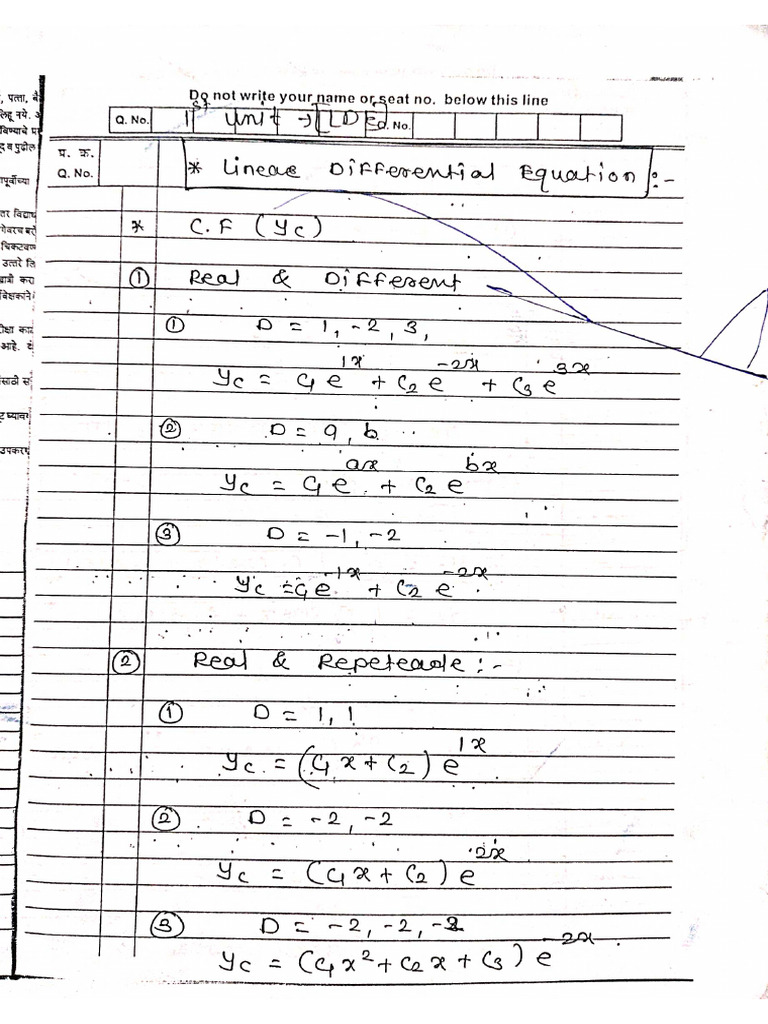 Do not write your name or seat no. below this line
Q. No. 1st Unit → [LDE] Q. No.
प्र. क्र.
Q. No.
* Linear Differential Equation :-
* C.F (yc)
① Real & Different
① D = 1, -2, 3,
yc = c1 e^1x + c2 e^-2x + c3 e^3x
② D = a, b
yc = c1 e^ax + c2 e^bx
③ D = -1, -2
yc = c1 e^-1x + c2 e^-2x
② Real & Repeteade :-
① D = 1, 1
yc = (c1 x + c2) e^1x
② D = -2, -2
yc = (c1 x + c2) e^-2x
③ D = -2, -2, -2
yc = (c1 x² + c2 x + c3) e^-2x